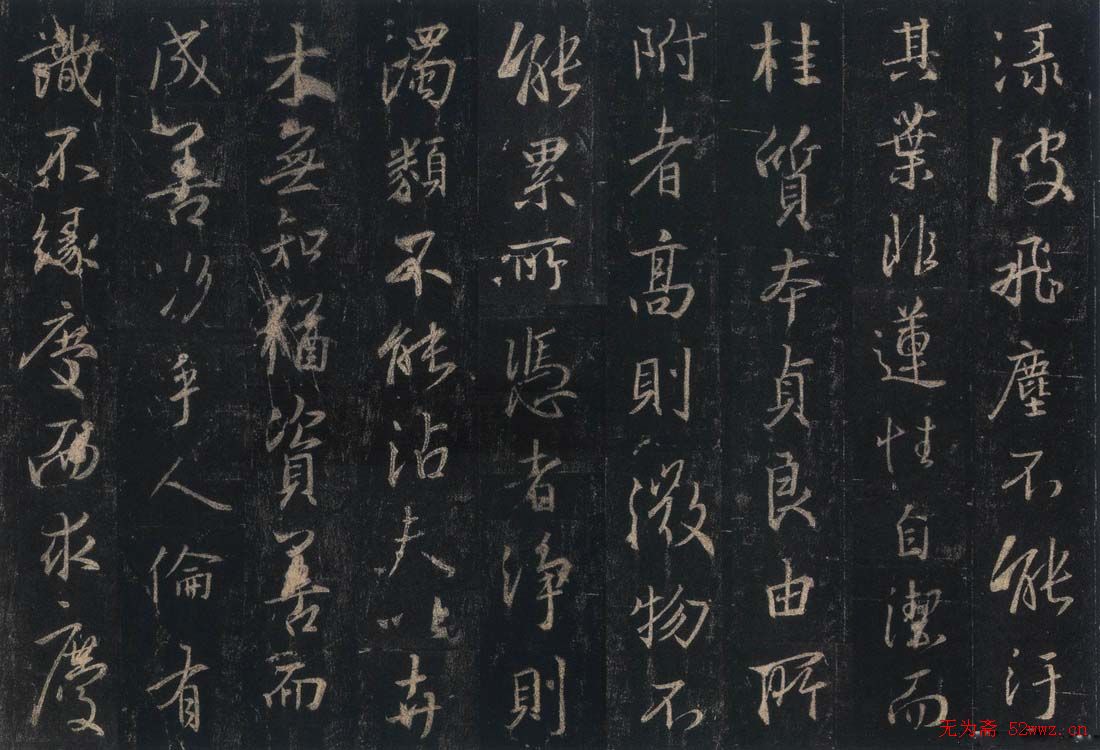 渌波飛塵不能汙
其葉非蓮性自潔而
桂質本貞良由所
附者高則微物不
能累所憑者淨則
濁類不能沾夫以卉
木無知猶資善而
成善況乎人倫有
識不緣慶而求慶
无为斋 52wwz.cn